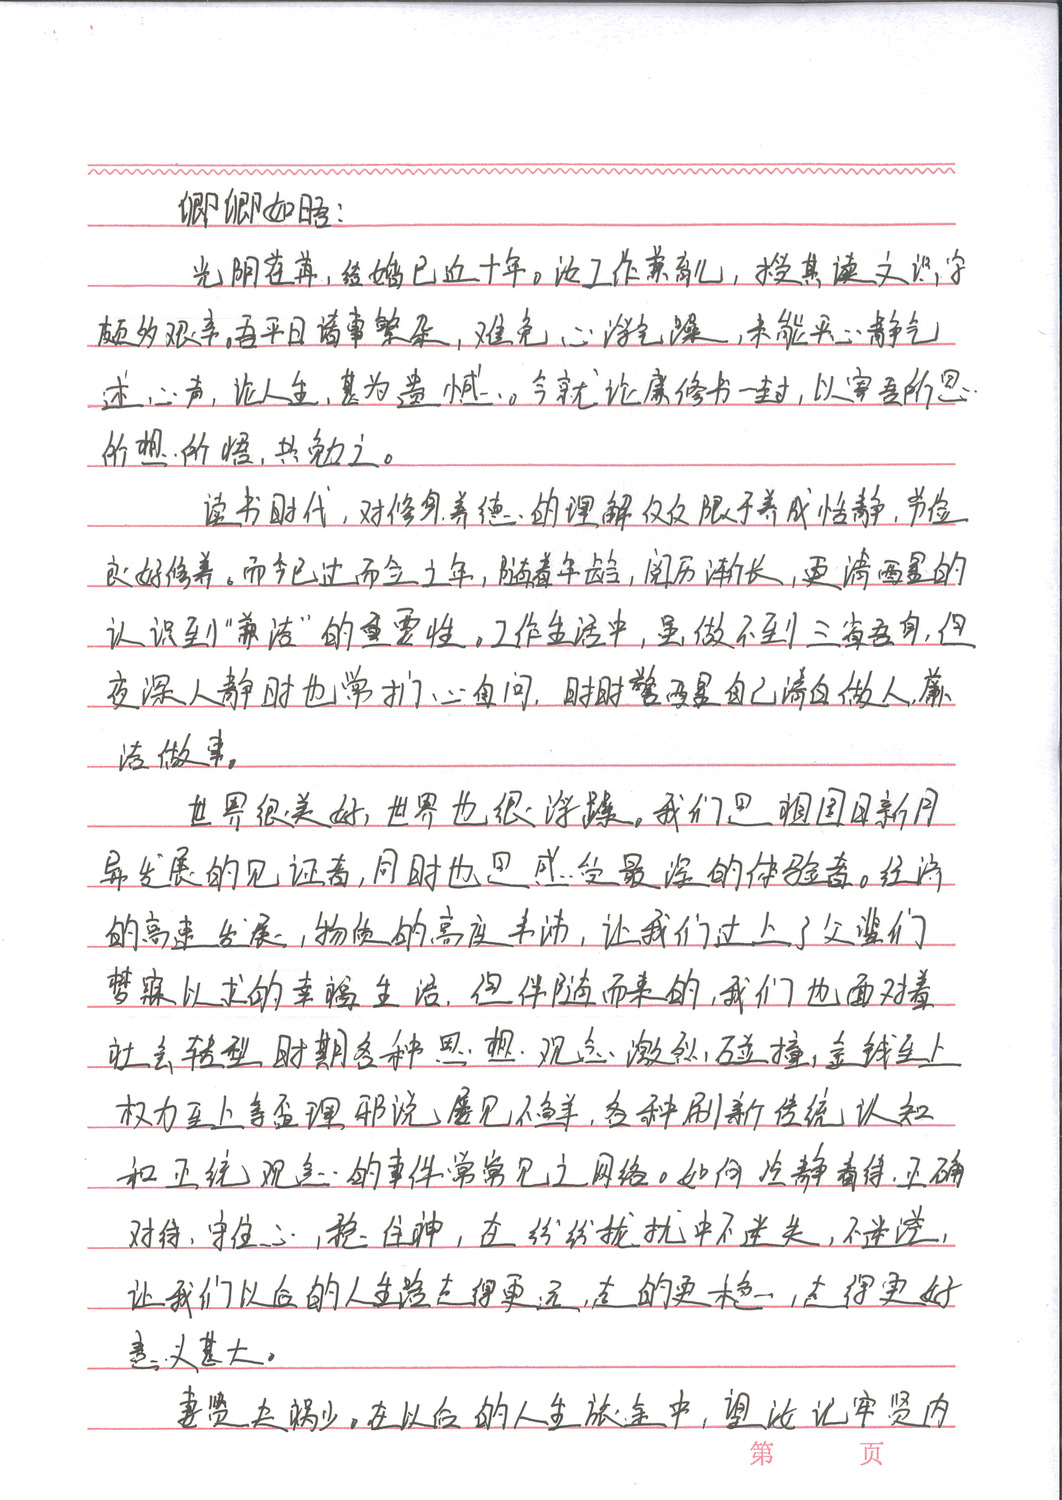 卿卿如晤：
光阴荏苒，结婚已近十年。汝工作兼育儿，授其读文识字
颇多艰辛。吾平日诸事繁杂，难免心浮气躁，未能平心静气
述心声，论人生，甚为遗憾。今就论廉修书一封，以寄吾所思
所想所悟，共勉之。
读书时代，对修身养德的理解仅仅限于养成恬静，节俭
良好修养。而今已过而立之年，随着年龄，阅历渐长，更清醒的
认识到“廉洁”的重要性。工作生活中，虽做不到三省吾身，但
夜深人静时也常扪心自问，时时警醒自己清白做人，廉
洁做事。
世界很美好，世界也很浮躁。我们是祖国日新月
异发展的见证者，同时也是感受最深的体验者。经济
的高速发展，物质的高度丰沛，让我们过上了父辈们
梦寐以求的幸福生活，但伴随而来的，我们也面对着
社会转型时期各种思想观念激烈碰撞，金钱至上
权力至上等歪理邪说屡见不鲜，各种刷新传统认知
和正统观念的事件常常见之网络。如何冷静看待，正确
对待，守住心，稳住神，在纷纷扰扰中不迷失，不迷茫，
让我们以后的人生路走得更远，走的更稳，走得更好
意义甚大。
妻贤夫祸少。在以后的人生旅途中，望汝记牢贤内
第 页